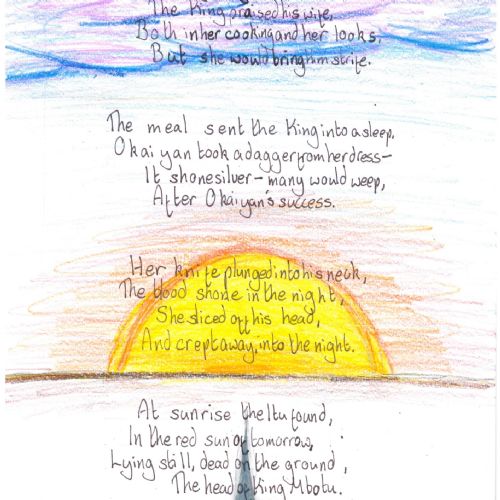 The King praised his wife,
Both in her cooking and her looks,
But she would bring him strife.
The meal sent the King into a sleep.
Okaiyan took a dagger from her dress-
It shone silver - many would weep,
After Okaiyan's success.
Her knife plunged into his neck,
The blood shone in the night,
She sliced off his head,
And crept away, into the night.
At sunrise the Itu found,
In the red sun of tomorrow,
Lying still, dead on the ground,
The head of King Mbotu.